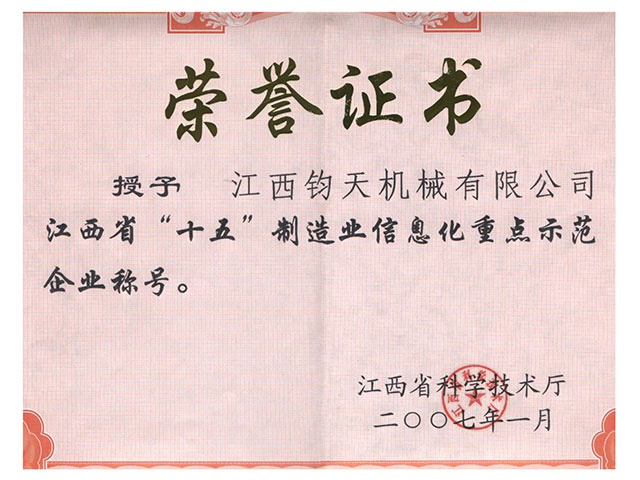 荣誉证书
授予 江西钧天机械有限公司
江西省“十五”制造业信息化重点示范
企业称号。
江西省科学技术厅
二〇〇七年一月